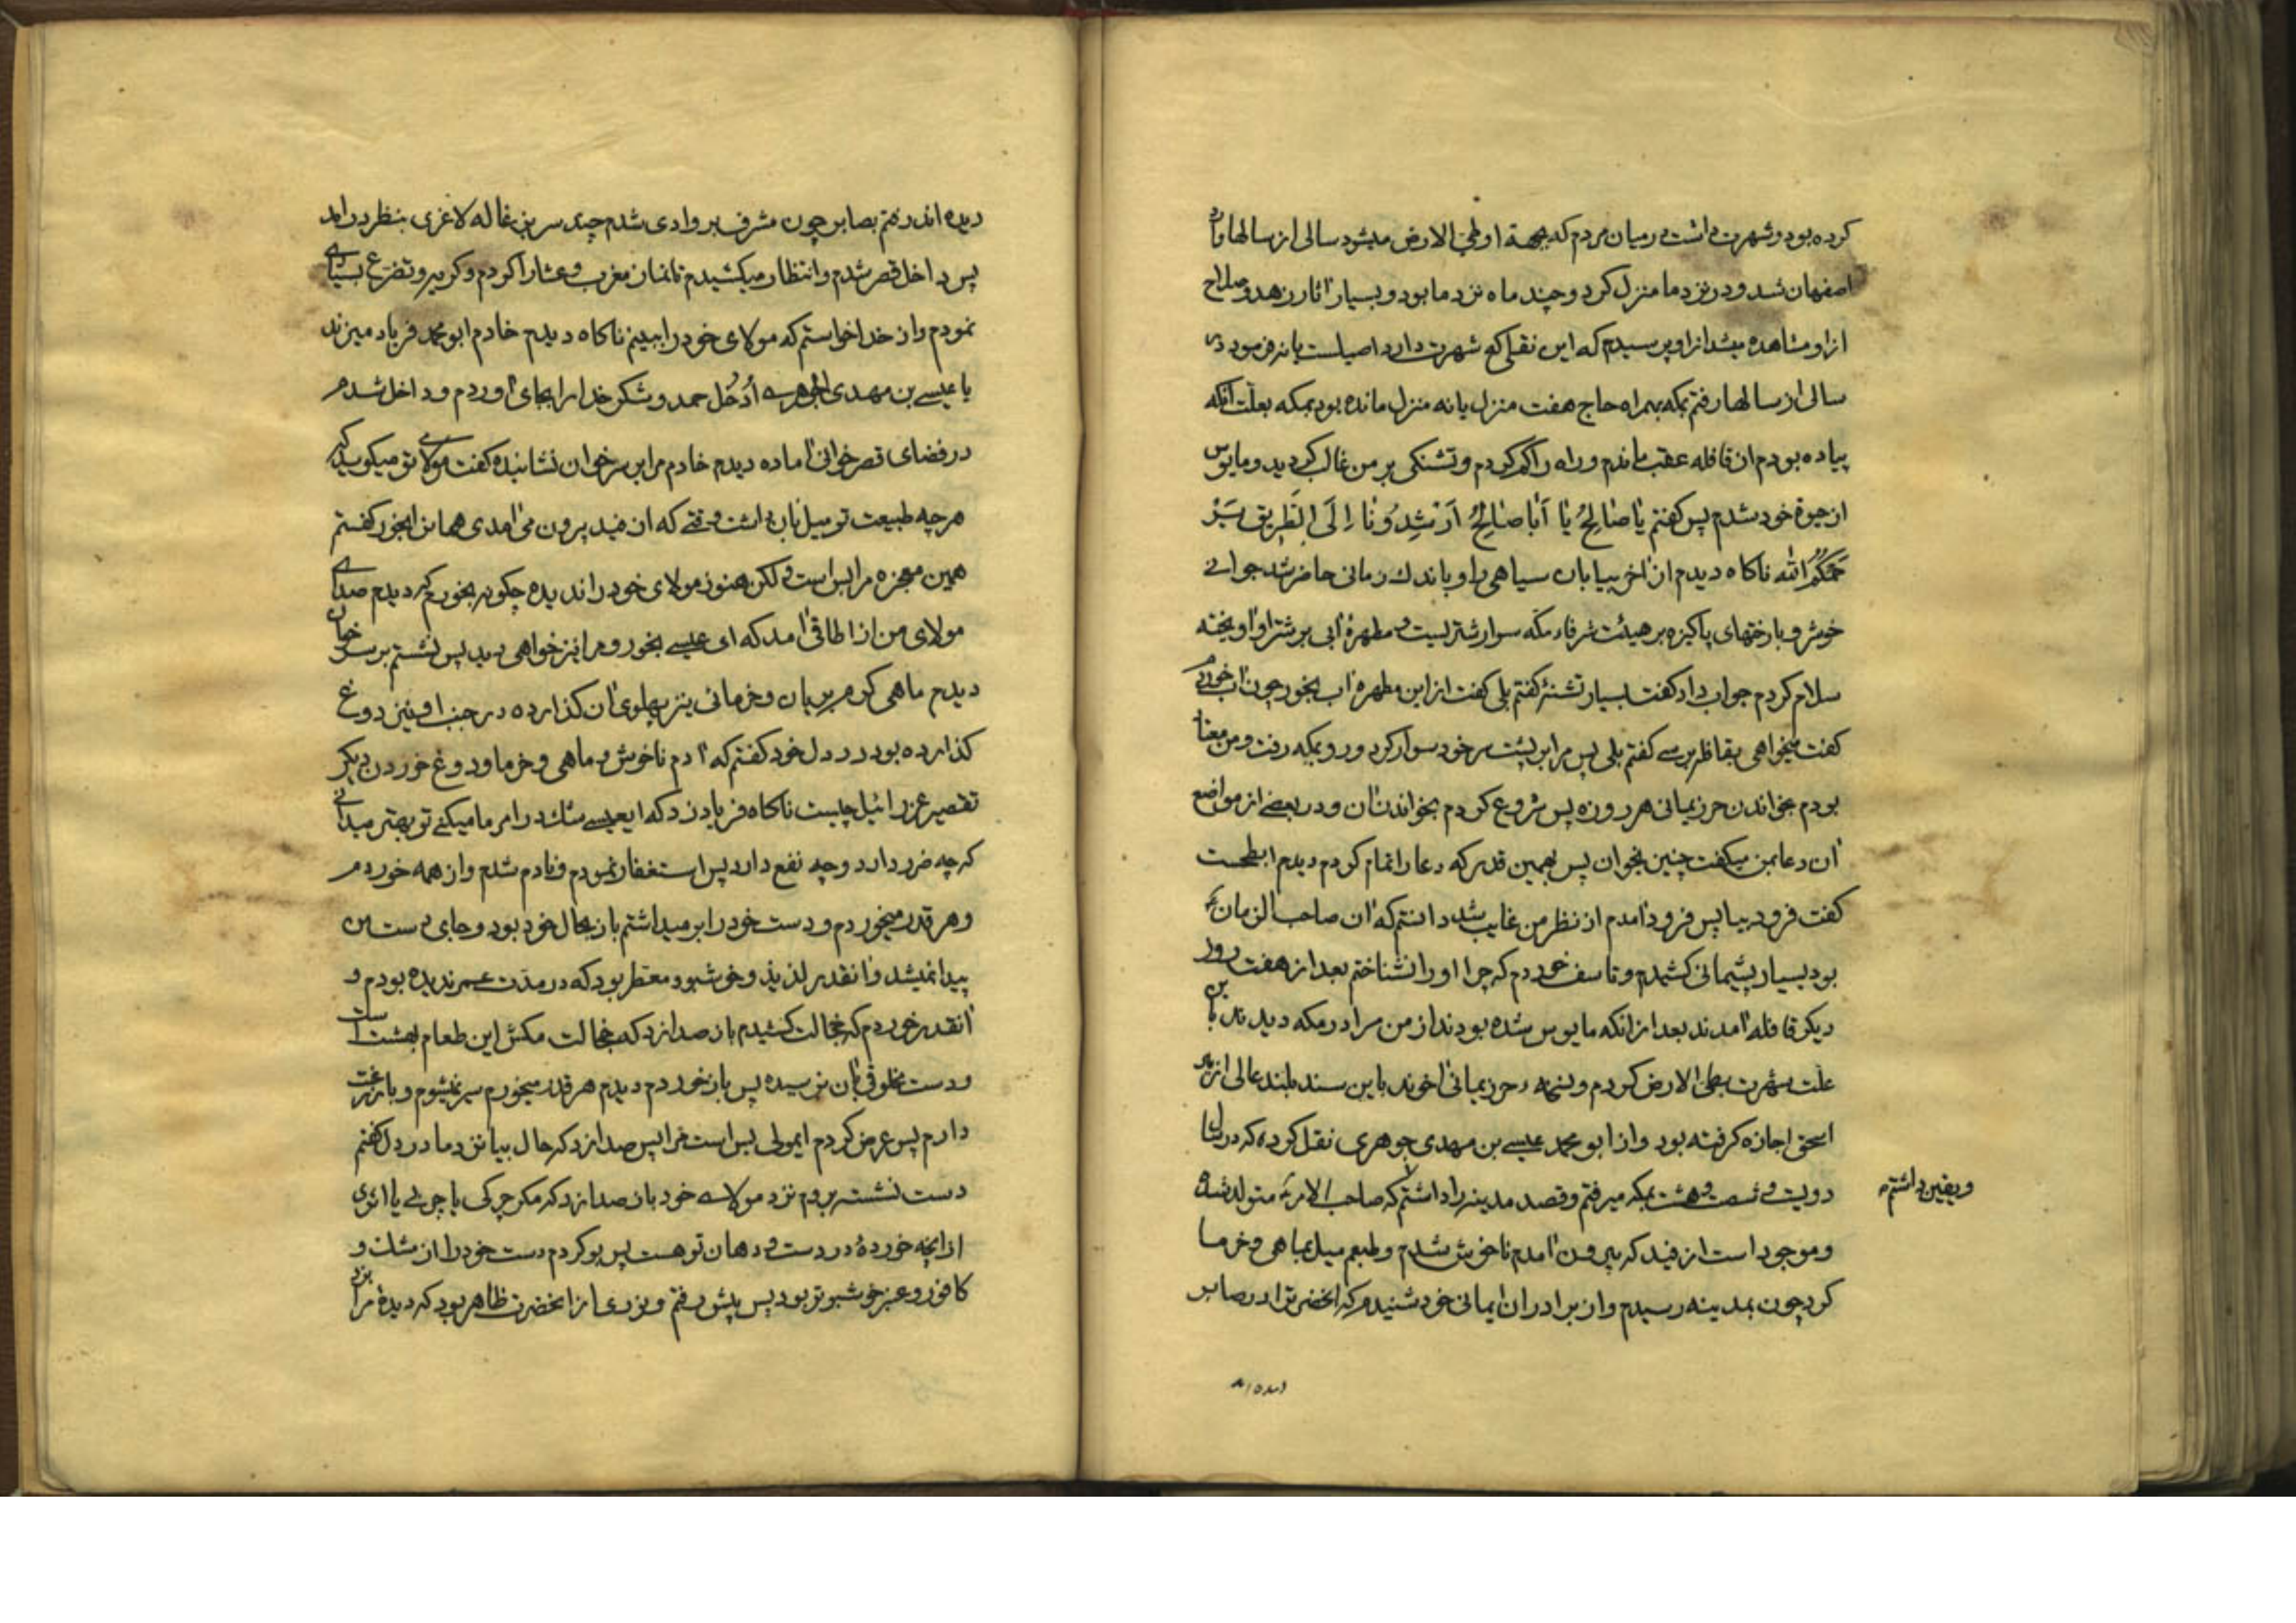 کرده بود و شهرت داشت در میان مردم که بجهة او طی الارض میشود سالی از سالها وارد
اصفهان شد و در نزد ما منزل کرد و چند ماه نزد ما بود و بسیار آثار زهد و صلاح
از او مشاهده میشد از او پرسیدم که این نقلی که شهرت دارد اصیلست یا نه فرمود در
سالی از سالها رفتم بمکه بهمراه حاج هفت منزل یا نه منزل مانده بود بمکه بعلت آنکه
پیاده بودم از قافله عقب ماندم و راه را گم کردم و تشنگی بر من غالب گردید و مایوس
از حیوة خود شدم پس گفتم یا صالِحُ یا أَبا صالِحُ اَرْشِدُونا إِلَی الطَّریقِ یَرْ
حَمَکُمُ الله ناکاه دیدم از آخر بیابان سیاهی را و باندك زمانی حاضر شد جوانی
خوشرو با رختهای پاکیزه بر هیئت شرفاء مکه سوار شتریست و مطهرهٔ آبی بر شتر او آویخته
سلام کردم جواب داد گفت بسیار تشنهٔ گفتم بلی گفت از این مطهره آب بخور چون آب خوردم
گفت میخواهی بقافله برسی گفتم بلی پس مرا بر پشت سر خود سوار کرد و رو بمکه رفت و من معتاد
بودم بخواندن حرز یمانی هر روزه پس شروع کردم بخواندن آن و در بعضی از مواضع
آن دعا بمن میگفت چنین بخوان پس بهمین قدر که دعا را تمام کردم دیدم ابطحست
گفت فرود بیا پس فرود آمدم از نظر من غایب شد دانستم که آن صاحب الزمان ع
بود بسیار پشیمانی کشیدم و تاسف خوردم که چرا او را نشناختم بعد از هفت روز
دیگر قافله آمدند بعد از آنکه مایوس شده بودند از من مرا در مکه دیدند باین
علت شهرت بطی الارض کردم و حرز یمانی آخوند باین سند بلند عالی از میر
اسحق اجازه گرفته بود و از ابو محمد عیسی بن مهدی جوهری نقل کرده که در سال
دویست و شصت و هشت بمکه میرفتم و قصد مدینه را داشتم که صاحب الامر ع متولد شده
ویقین داشتم
و موجود است از فید که بیرون آمدم ناخوش شدم و طبعم میل بماهی و خرما
کرد چون بمدینه رسیدم و از برادران ایمانی خود شنیدم که آنحضرت را در صابر
دیده اند
دیده اند رفتم بصابر چون مشرف بر وادی شدم چند سر بزغاله لاغری بنظر درآمد
پس داخل قصر شدم و انتظار میکشیدم تا نماز مغرب و عشا را کردم و گریه و تضرع بسیاری
نمودم و از خدا خواستم که مولای خود را ببینم ناکاه دیدم خادم ابو محمد فریاد میزند
یا عیسی بن مهدی الجوهری اُدْخُل حمد و شکر خدا را بجای آوردم و داخل شدم
در فضای قصر خوانی آماده دیدم خادم مرا بر سر خوان نشانیده گفت مولای تو میگوید که
هر چه طبیعت تو میل بآن داشت وقتی که از فید بیرون می آمدی همان را بخور گفتم
همین معجزه مرا بس است و لکن هنوز مولای خود را ندیده چگونه بخورم که دیدم صدای
مولای من از اطاقی آمد که ای عیسی بخور و مرا نیز خواهی دید پس نشستم بر سر خوان
دیدم ماهی گرم بریان و خرمائی نیز پهلوی آن گذارده در جنب او نیز دوغ
گذارده بود در دل خود گفتم که آدم ناخوش و ماهی و خرما و دوغ خوردن دیگر
تقصیر عزرائیل چیست ناکاه فریاد زد که ایعیسی شك در امر ما میکنی تو بهتر میدانی
که چه ضرر دارد و چه نفع دارد پس استغفار نمودم و نادم شدم و از همه خوردم
و هر قدر میخوردم و دست خود را بر میداشتم باز بحال خود بود و جای دست من
پیدا نمیشد و آنقدر لذیذ و خوشبو و معطر بود که در مدت عمر ندیده بودم و
آنقدر خوردم که خجالت کشیدم باز صدا زد که خجالت مکش این طعام بهشت است
و دست مخلوقی بآن نرسیده پس باز خوردم دیدم هر قدر میخورم سیر نمیشوم و باز رغبت
دارم پس عرض کردم ایمولی بس است مرا پس صدا زد که حال بیا نزد ما در دل گفتم
دست نشسته بروم نزد مولای خود باز صدا زد که مگر چرکی یا چربی یا اثری
از آنچه خوردهٔ در دست و دهان تو هست پس بو کردم دست خود را از مشك و
کافور و عنبر خوشبوتر بود پس پیش رفتم و نوری از آنحضرت ظاهر بود که دیدهٔ مرا